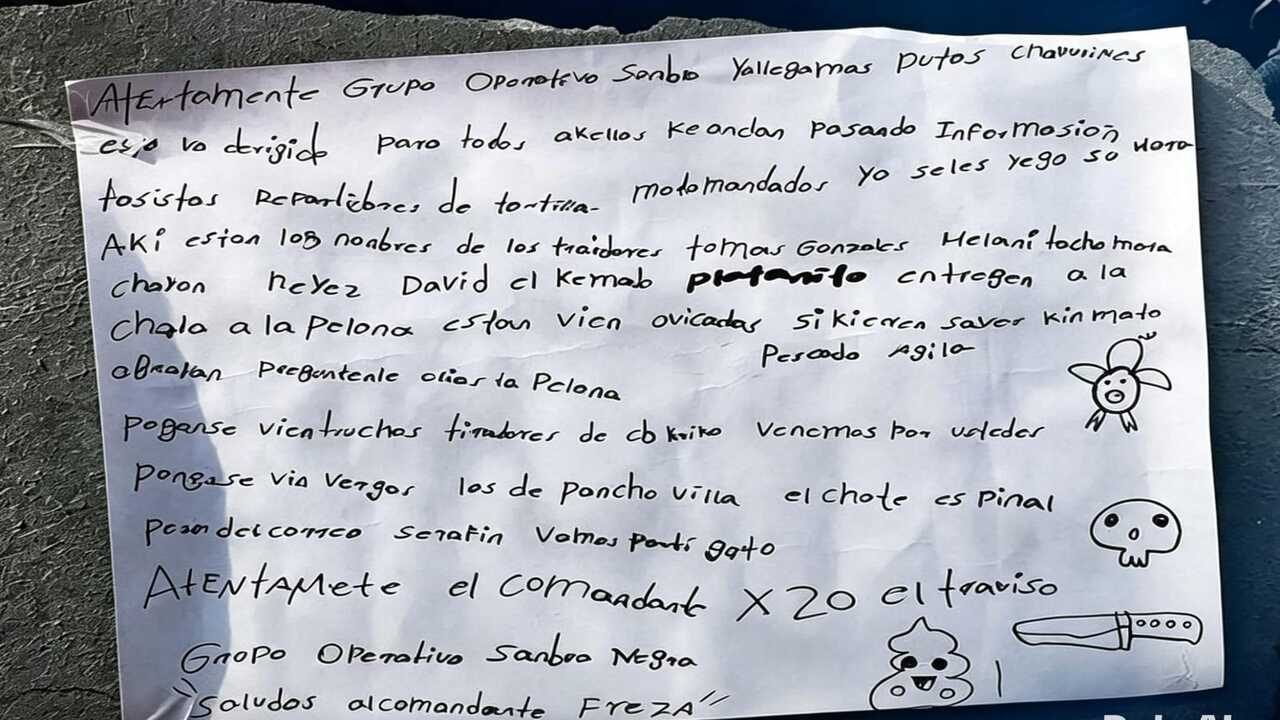 Atertamente Grupo Operativo Sonbra Yallegamas putos chavulines
esto va dirigido para todos akellos ke andan pasando Informasion
tasistas Repartidores de tortilla- motomandados Ya seles yego so Hora
AKi estan los nonbres de los traidores tomas Gonzales Melani tacho mora
chayon Reyez David el Kemab platanito entregen a la
Chola a la Pelona estan vien ovicadas si kieren saver kin mato
abrayan preguntenle alias la Pelona
Pescado Agila
poganse vientruchas tiradores de cb kriko venemos por ustedes
pongase via vergas los de pancho villa el chote es pinal
serafin Vamos por ti gato
AtENtAMete el comandante X20 el traviso
Gropo Operativo Sanbra Negra
"Saludos alcomandante FREZA"